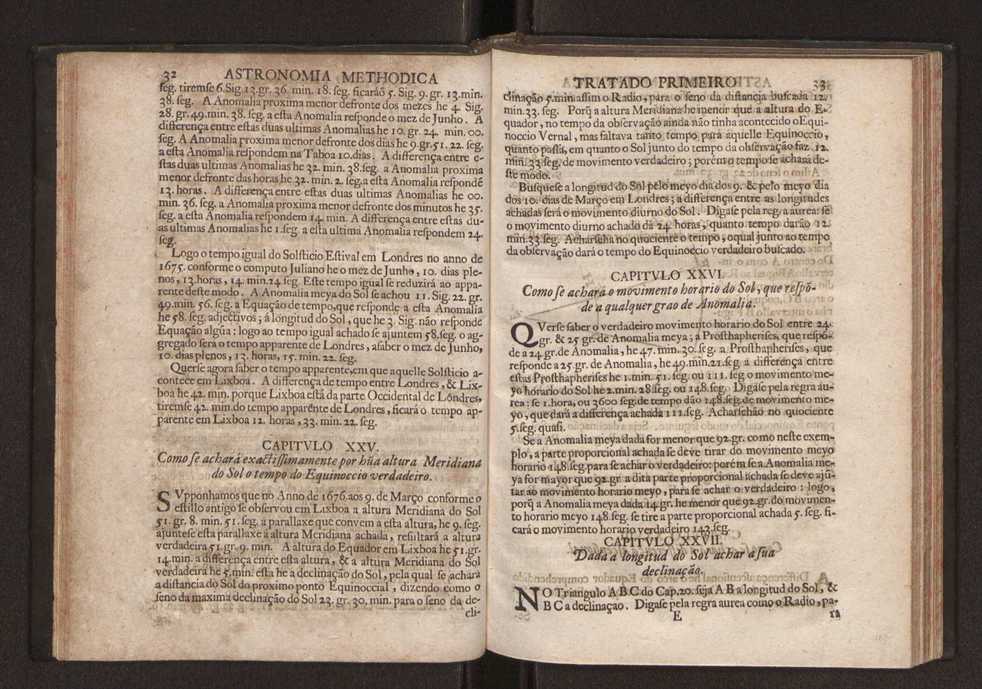 32 ASTRONOMIA METHODICA
seg. tiremse 6. Sig. 13. gr. 36. min. 18. seg. ficaráõ 5. Sig. 9. gr. 13. min.
38. seg. A Anomalia proxima menor defronte dos mezes he 4. Sig.
28. gr. 49. min. 38. seg. a esta Anomalia responde o mez de Junho. A
differença entre estas duas ultimas Anomalias he 10. gr. 24. min. 00.
seg. A Anomalia proxima menor defronte dos dias he 9. gr. 51. 22. seg.
a esta Anomalia respondem na Taboa 10. dias. A differença entre e-
stas duas ultimas Anomalias he 32. min. 38. seg. a Anomalia proxima
menor defronte das horas he 32. min. 2. seg. a esta Anomalia respondẽ
13. horas. A differença entre estas duas ultimas Anomalias he 00.
min. 36. seg. a Anomalia proxima menor defronte dos minutos he 35.
seg. a esta Anomalia respondem 14. min. A differença entre estas du-
as ultimas Anomalias he 1. seg. a esta ultima Anomalia respondem 24.
seg.
Logo o tempo igual do Solsticio Estival em Londres no anno de
1675. conforme o computo Juliano he o mez de Junho, 10. dias ple-
nos, 13. horas, 14. min. 24. seg. Este tempo igual se reduzirá ao appa-
rente deste modo. A Anomalia meya do Sol se achou 11. Sig. 22. gr.
49. min. 56. seg. a Equação de tempo, que responde a esta Anomalia
he 58. seg. adjectivos; á longitud do Sol, que he 3. Sig. não responde
Equação algũa: logo ao tempo igual achado se ajuntem 58. seg. o ag-
gregado será o tempo apparente de Londres, asaber o mez de Junho,
10. dias plenos, 13. horas, 15. min. 22. seg.
Querse agora saber o tempo apparente, em que aquelle Solsticio a-
contece em Lixboa. A differença de tempo entre Londres, & Lix-
boa he 42. min. porque Lixboa está da parte Occidental de Londres,
tiremse 42. min. do tempo apparente de Londres, ficará o tempo ap-
parente em Lixboa 12. horas, 33. min. 22. seg.
CAPITVLO XXV.
Como se achará exactissimamente por hũa altura Meridiana
do Sol o tempo do Equinoccio verdadeiro.
SVpponhamos que no Anno de 1676. aos 9. de Março conforme o
estillo antigo se observou em Lixboa a altura Meridiana do Sol
51. gr. 8. min. 51. seg. a parallaxe que convem a esta altura, he 9. seg.
ajuntese esta parallaxe á altura Meridiana achada, resultará a altura
verdadeira 51. gr. 9. min. A altura do Equador em Lixboa he 51. gr.
14. min. a differença entre esta altura, & a altura Meridiana do Sol
verdadeira he 5. min. esta he a declinação do Sol, pela qual se achará
a distancia do Sol do proximo ponto Equinoccial, dizendo como o
seno da maxima declinação do Sol 23. gr. 30. min. para o seno da de-
cli-
TRATADO PRIMEIRO 33
clinação 5. min. assim o Radio, para o seno da distancia buscada 12.
min. 33. seg. Porq̃ a altura Meridiana he menor que a altura do E-
quador, no tempo da observação ainda não tinha acontecido o Equi-
noccio Vernal, mas faltava tanto tempo para aquelle Equinoccio,
quanto passa, em quanto o Sol junto do tempo da observação faz 12.
min. 33. seg. de movimento verdadeiro; porèm o tempo se achará de-
ste modo.
Busquese a longitud do Sol pelo meyo dia dos 9. & pelo meyo dia
dos 10. dias de Março em Londres; a differença entre as longitudes
achadas será o movimento diurno do Sol. Digase pela reg. a aurea: se
o movimento diurno achado dá 24. horas, quanto tempo darão 12.
min. 33. seg. Acharseha no quociente o tempo, o qual junto ao tempo
da observação dará o tempo do Equinoccio verdadeiro buscado.
CAPITVLO XXVI.
Como se achará o movimento horario do Sol, que respõ-
de a qualquer grao de Anomalia.
QVerse saber o verdadeiro movimento horario do Sol entre 24.
gr. & 25. gr. de Anomalia meya; a Prosthapherises, que respõ-
de a 24. gr. de Anomalia, he 47. min. 30. seg. a Prosthapherises, que
responde a 25. gr. de Anomalia, he 49. min. 21. seg. a differença entre
estas Prosthapherises he 1. min. 51. seg. ou 111. seg. o movimento me-
yo horario do Sol he 2. min. 28. seg. ou 148. seg. Digase pela regra áu-
rea: se 1. hora, ou 3600. seg. de tempo dão 148. seg. de movimento me-
yo, que dará a differença achada 111. seg. Acharsehão no quociente
5. seg. quasi.
Se a Anomalia meya dada for menor que 92. gr. como neste exem-
plo, a parte proporcional achada se deve tirar do movimento meyo
horario 148. seg. para se achar o verdadeiro: porèm se a Anomalia me-
ya for mayor que 92. gr. a dita parte proporcional achada se deve ajũ-
tar ao movimento horario meyo, para se achar o verdadeiro: logo,
porq̃ a Anomalia meya dada 14. gr. he menor que 92. gr. do movimen-
to horario meyo 148. seg. se tire a parte proporcional achada 5. seg. fi-
cará o movimento horario verdadeiro 142. seg.
CAPITVLO XXVII.
Dada a longitud do Sol achar a sua
declinação.
NO Triangulo A B C do Cap. 20. seja A B a longitud do Sol, &
B C a declinaçao. Digase pela regra aurea como o Radio, pa-
E ra